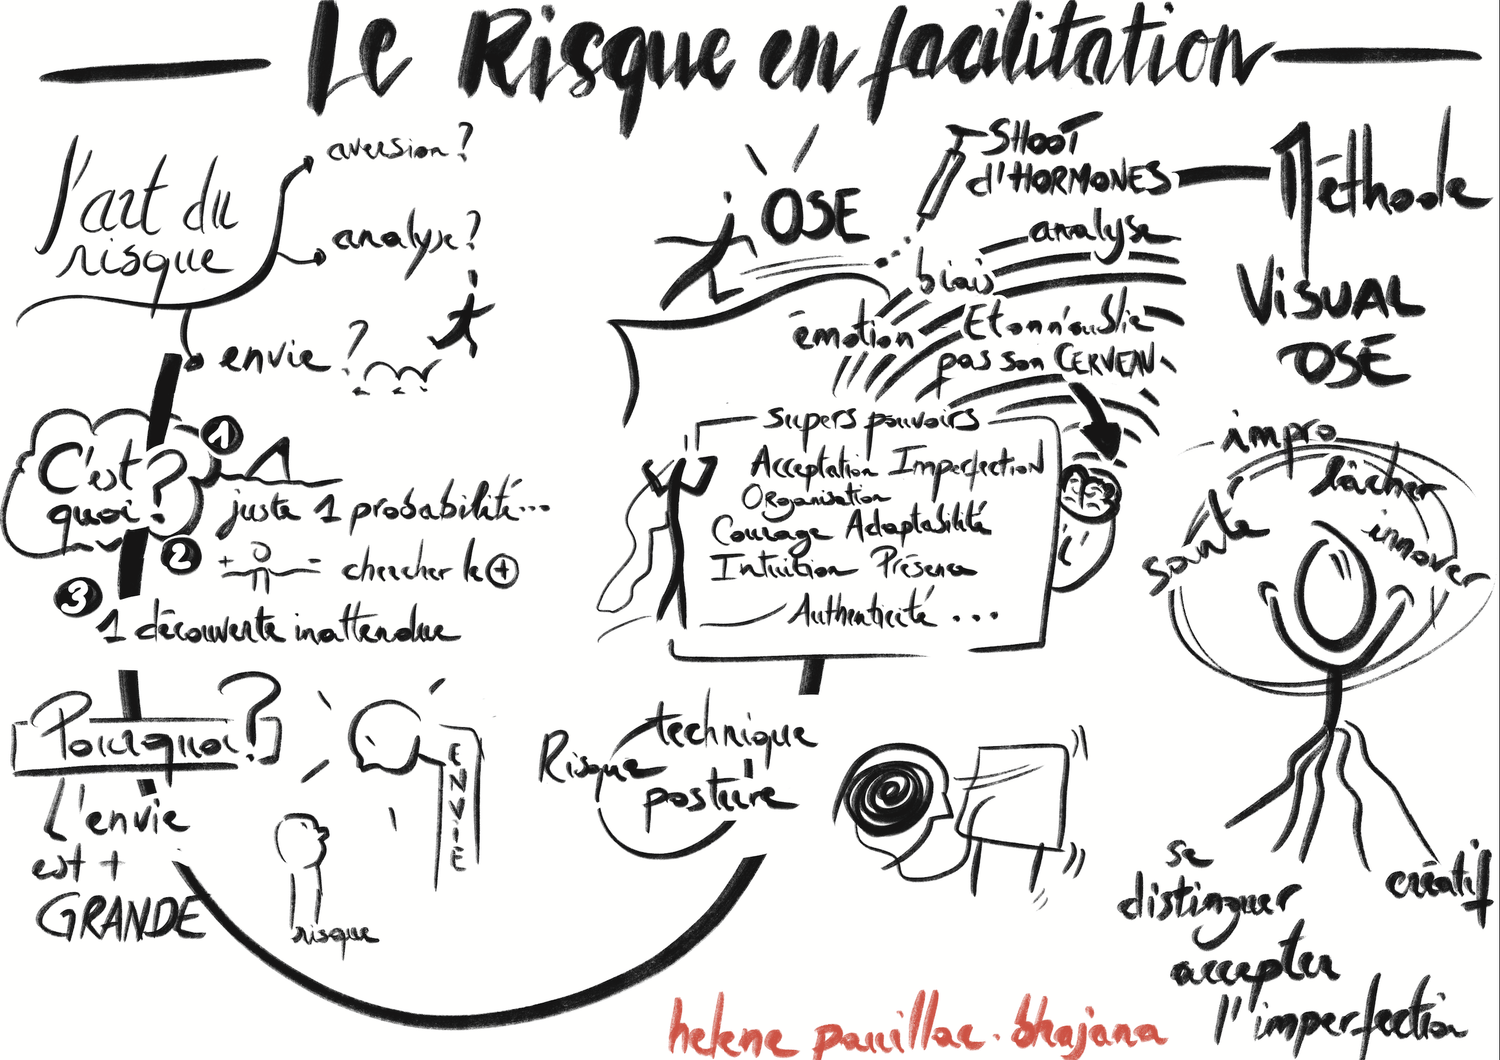 Le Risque en facilitation
l'art du
risque
aversion ?
analyse ?
envie ?
C'est
quoi ?
1
juste 1 probabilité...
2
+ - chercher le +
3
1 découverte inattendue
Pourquoi ?
L'envie
est +
GRANDE
ENVIE
risque
Risque
technique
posture
OSE
SHOOT
d'HORMONES
analyse
biais
émotion
Et on n'oublie
pas son CERVEAU
supers pouvoirs
Acceptation Imperfection
Organisation
Courage Adaptabilité
Intuition Présence
Authenticité ...
Méthode
VISUAL
OSE
impro
lâcher
innover
santé
se
distinguer
créatif
accepter
l'imperfection
helene pouillac. bhajana